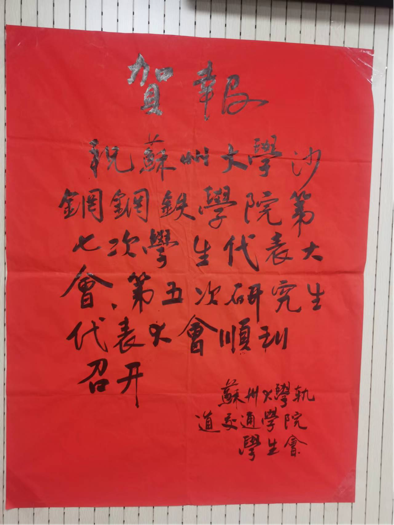 賀報
祝蘇州大學沙
鋼鋼鉄學院第
七次學生代表大
會、第五次研究生
代表大會順利
召开
蘇州大學軌
道交通學院
學生會